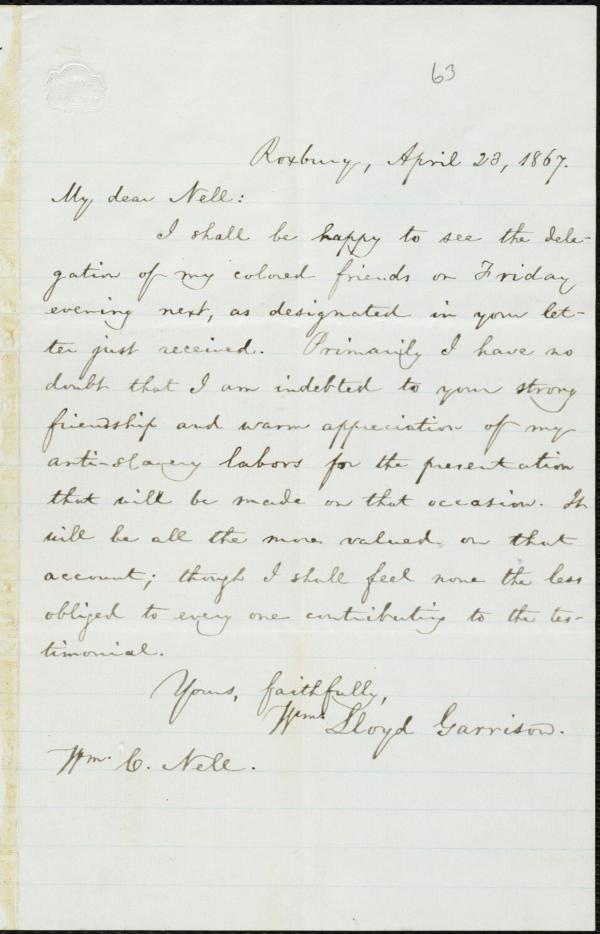 63
Roxbury, April 23, 1867.
My dear Nell:
I shall be happy to see the dele-
gation of my colored friends on Friday
evening next, as designated in your let-
ter just received. Primarily I have no
doubt that I am indebted to your strong
friendship and warm appreciation of my
anti-slavery labors for the presentation
that will be made on that occasion. It
will be all the more valued on that
account; though I shall feel none the less
obliged to every one contributing to the tes-
timonial.
Yours, faithfully,
Wm. Lloyd Garrison.
Wm. C. Nell.